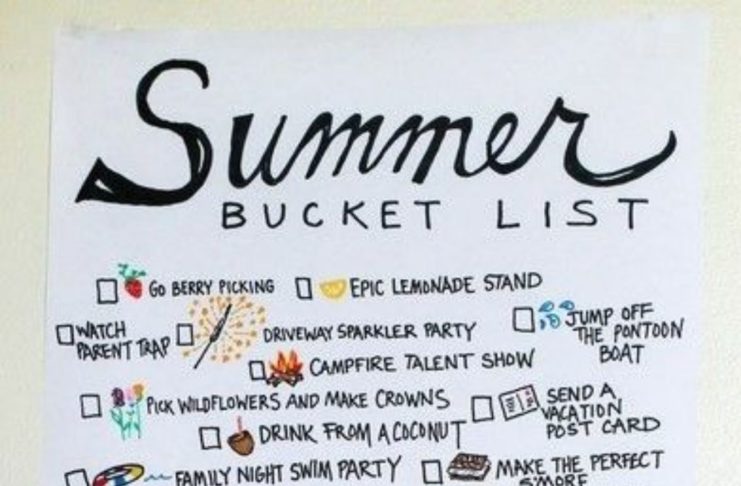 Summer
BUCKET LIST
GO BERRY PICKING
EPIC LEMONADE STAND
WATCH
PARENT TRAP
DRIVEWAY SPARKLER PARTY
JUMP OFF
THE PONTOON
BOAT
CAMPFIRE TALENT SHOW
PICK WILDFLOWERS AND MAKE CROWNS
SEND A
VACATION
POST CARD
DRINK FROM A COCONUT
FAMILY NIGHT SWIM PARTY
MAKE THE PERFECT
S'MORE